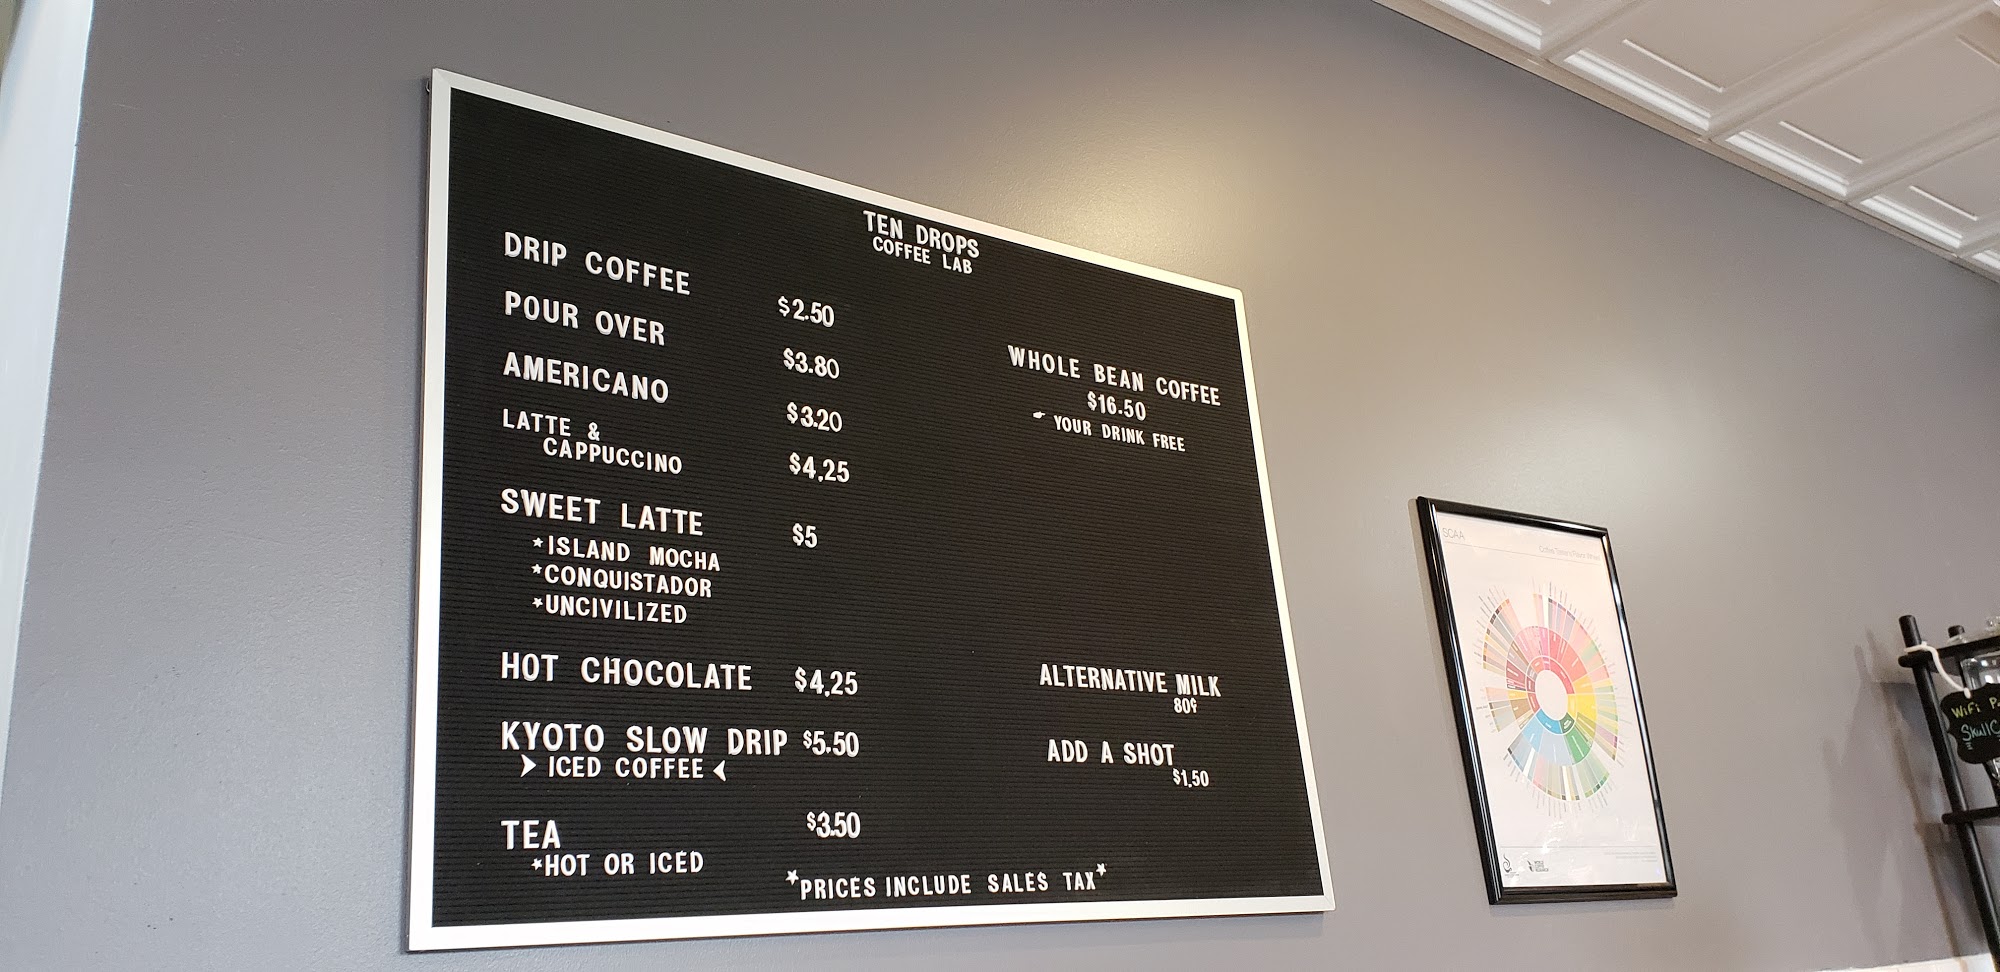 TEN DROPS
COFFEE LAB
DRIP COFFEE $2.50
POUR OVER $3.80
AMERICANO $3.20
LATTE &
CAPPUCCINO $4,25
SWEET LATTE $5
*ISLAND MOCHA
*CONQUISTADOR
*UNCIVILIZED
HOT CHOCOLATE $4,25
KYOTO SLOW DRIP $5.50
ICED COFFEE
TEA $3.50
*HOT OR ICED
WHOLE BEAN COFFEE
$16.50
YOUR DRINK FREE
ALTERNATIVE MILK
80¢
ADD A SHOT
$1,50
*PRICES INCLUDE SALES TAX*
SCAA
WiFi